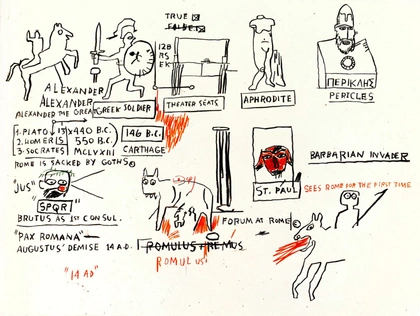 TRUE ☒
FALSE ☒
ALEXANDER
ALEXANDER
ALEXANDER THE GREA
GREEK SOLDIER
THEATER SEATS
APHRODITE
ΠΕΡΙΚΛΗΣ
PERICLES
1. PLATO
2. HOMER
3. SOCRATES
440 B.C.
550 B.C.
MCLVXIII
146 B.C.
CARTHAGE
ROME IS SACKED BY GOTHS
"JUS"
SPQR
BRUTUS AS 1ST CONSUL.
"PAX ROMANA"
AUGUSTUS' DEMISE 14 A.D.
"14 AD"
ROMULUS + REMUS
ROMULUS
FORUM AT ROME
ST. PAUL
BARBARIAN INVADER
SEES ROME FOR THE FIRST TIME